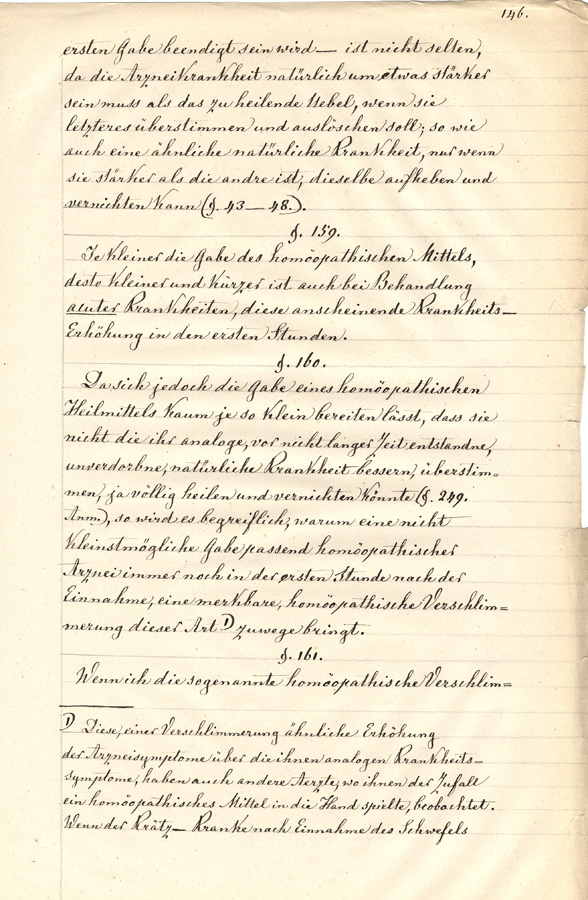 146.
ersten Gabe beendigt sein wird — ist nicht selten,
da die Arzneikrankheit natürlich um etwas stärker
sein muss als das zu heilende Uebel, wenn sie
letzteres überstimmen und auslöschen soll; so wie
auch eine ähnliche natürliche Krankheit, nur wenn
sie stärker als die andre ist, dieselbe aufheben und
vernichten kann (§. 43 — 48.).
§. 159.
Je kleiner die Gabe des homöopathischen Mittels,
desto kleiner und kürzer ist auch bei Behandlung
acuter Krankheiten, diese anscheinende Krankheits-
Erhöhung in den ersten Stunden.
§. 160.
Da sich jedoch die Gabe eines homöopathischen
Heilmittels kaum je so klein bereiten lässt, dass sie
nicht die ihr analoge, vor nicht langer Zeit entstandne,
unverdorbne, natürliche Krankheit bessern, überstim=
men, ja völlig heilen und vernichten könnte (§. 249.
Anm.), so wird es begreiflich, warum eine nicht
kleinstmögliche Gabe passend homöopathischer
Arznei immer noch in der ersten Stunde nach der
Einnahme, eine merkbare, homöopathische Verschlim=
merung dieser Art 1) zuwege bringt.
§. 161.
Wenn ich die sogenannte homöopathische Verschlim=
1) Diese, einer Verschlimmerung ähnliche Erhöhung
der Arzneisymptome über die ihnen analogen Krankheits=
symptome, haben auch andere Aerzte, wo ihnen der Zufall
ein homöopathisches Mittel in die Hand spielte, beobachtet.
Wenn der Krätz — Kranke nach Einnahme des Schwefels